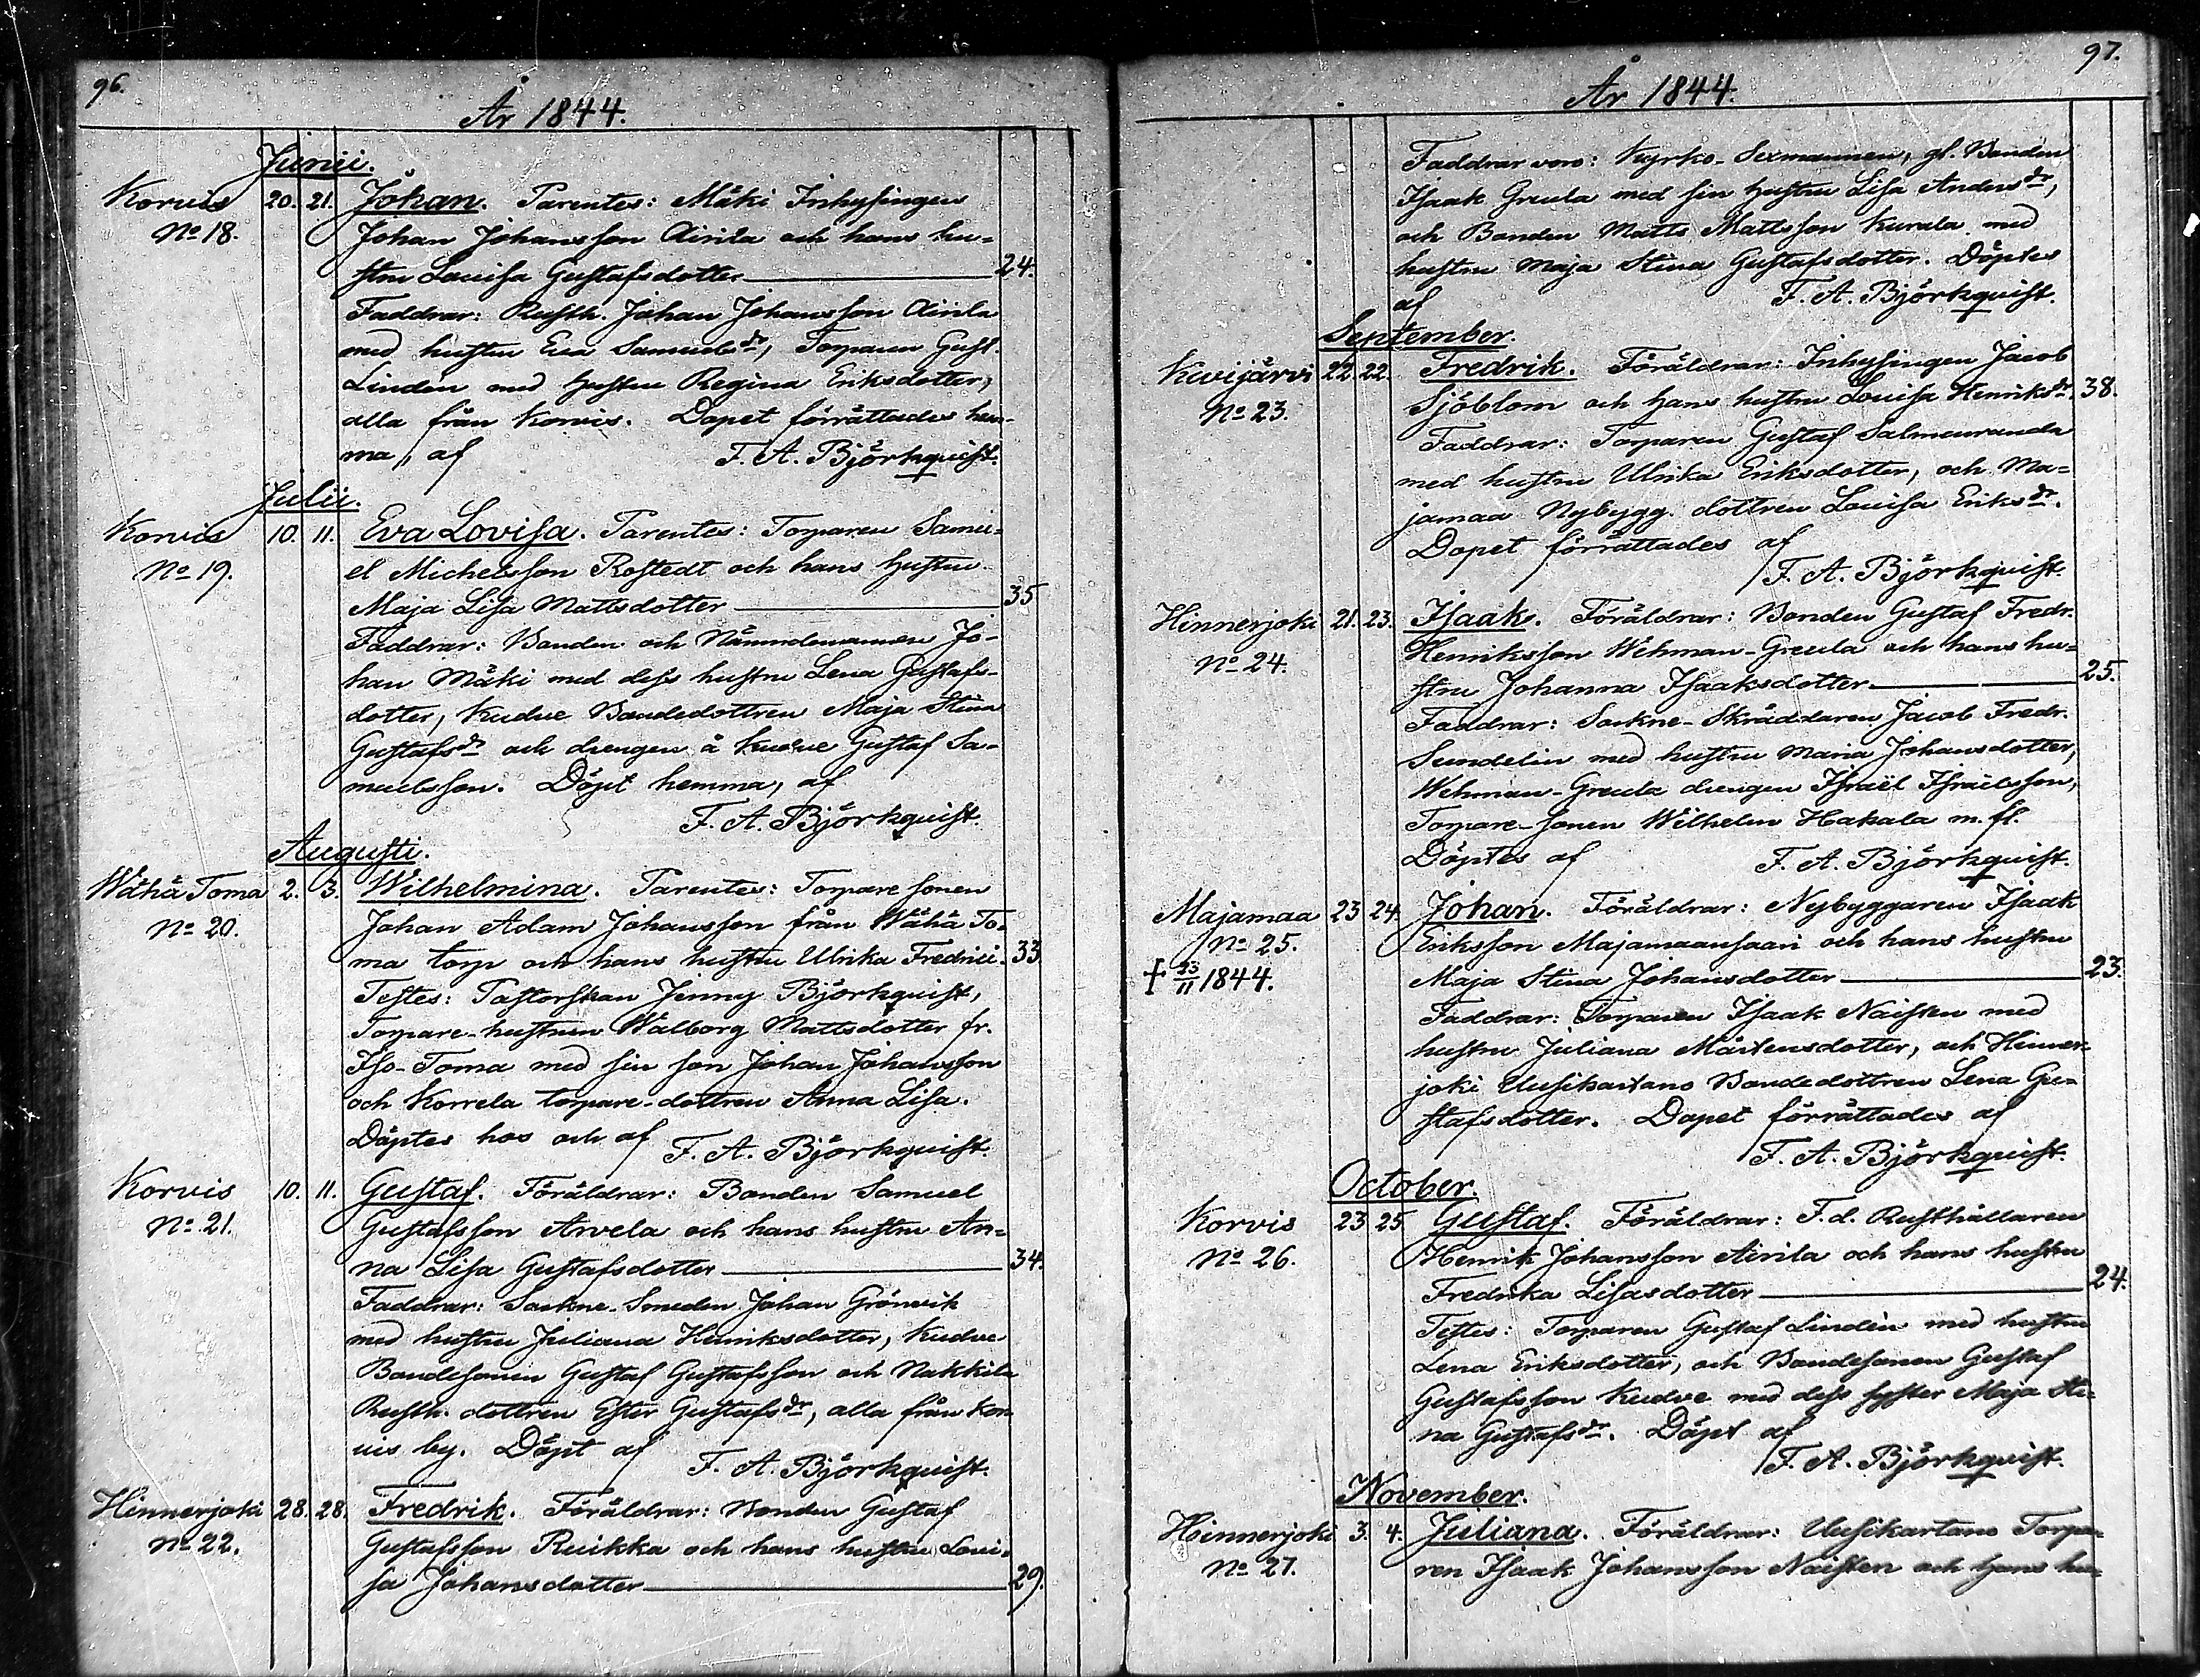 96.
År 1844.
Junii.
Korvis 20. 21. Johan. Parentes: Mäki Inhysingen
No 18. Johan Johansson Airila och hans hu-
stru Lovisa Gustafsdotter 24.
Faddrar: Rusth. Johan Johansson Airila
med hustru Eva Samuelsdr, Torparen Gust.
Linden med hustru Regina Eriksdotter,
alla från Korvis. Dopet förrättades hem-
ma, af F. A. Björkquist.
Julii.
Korvis 10. 11. Eva Lovisa. Parentes: Torparen Samu-
No 19. el Michelsson Rostedt och hans hustru
Maja Lisa Mattsdotter 35
Faddrar: Bonden och Nämndemannen Jo-
han Mäki med dess hustru Lena Gustafs-
dotter, Kudve Bondedottren Maja Stina
Gustafsdr och drengen å Kudve Gustaf Sa-
muelsson. Döpt hemma, af
F. A. Björkquist.
Augusti.
Wähä Toma 2. 3. Wilhelmina. Parentes: Torpare sonen
No 20. Johan Adam Johansson från Wähä To-
ma torp och hans hustru Ulrika Fredrici. 33
Testes: Pastorskan Jenny Björkquist,
Torpare-hustrun Walborg Mattsdotter fr.
Iso-Toma med sin son Johan Johansson
och Korrela torpare-dottren Anna Lisa.
Döptes hos och af F. A. Björkquist.
Korvis 10. 11. Gustaf. Föräldrar: Bonden Samuel
No 21. Gustafsson Arvela och hans hustru An-
na Lisa Gustafsdotter 34.
Faddrar: Sockne-Smeden Johan Grönvik
med hustru Juliana Henriksdotter, Kudve
Bondesonen Gustaf Gustafsson och Nakkila
Rusth. dottren Ester Gustafsdr, alla från Kor-
vis by. Döpt af F. A. Björkquist.
Hinnerjoki 28. 28. Fredrik. Föräldrar: Bonden Gustaf
No 22. Gustafsson Ruikka och hans hustru Lovi-
sa Johansdotter 29.
97.
År 1844.
Faddrar voro: Kyrko-Sexmannen, gl. Bonden
Isaak Greula med sin hustru Lisa Andersdr,
och Bonden Matts Mattsson Kurala med
hustru Maja Stina Gustafsdotter. Döptes
af F. A. Björkquist.
September.
Kivijärvi 22. 22. Fredrik. Föräldrar: Inhysingen Jacob
No 23. Sjöblom och hans hustru Lovisa Henriksdr 38.
Faddrar: Torparen Gustaf Salmenranda
med hustru Ulrika Eriksdotter, och Ma-
jamaa Nybygg. dottren Lovisa Eriksdr.
Dopet förrättades af
F. A. Björkquist.
Hinnerjoki 21. 23. Isaak. Föräldrar: Bonden Gustaf Fredr.
No 24. Henriksson Wehman-Greula och hans hu-
stru Johanna Isaaksdotter 25.
Faddrar: Sockne-Skräddaren Jacob Fredr.
Sundelin med hustru Maria Johansdotter,
Wehman-Greula drengen Israël Israëlsson,
Torpare-Sonen Wilhelm Hakala m. fl.
Döptes af F. A. Björkquist.
Majamaa 23 24. Johan. Föräldrar: Nybyggaren Isaak
No 25. Eriksson Majamaansaari och hans hustru
† 23/11 1844. Maja Stina Johansdotter 23.
Faddrar: Torparen Isaak Naisten med
hustru Juliana Mårtensdotter, och Hinner-
joki Uusikartano Bondedottren Lena Gu-
stafsdotter. Dopet förrättades af
F. A. Björkquist.
October.
Korvis 23 25 Gustaf. Föräldrar: F. d. Rusthållaren
No 26. Henrik Johansson Airila och hans hustru
Fredrika Lisasdotter 24.
Testes: Torparen Gustaf Lindén med hustru
Lena Eriksdotter, och Bondesonen Gustaf
Gustafsson Kudve med dess syster Maja Sti-
na Gustafsdr. Döpt af
F. A. Björkquist.
November.
Hinnerjoki 3. 4. Juliana. Föräldrar: Uusikartano Torpa-
No 27. ren Isaak Johansson Naisten och hans hu-